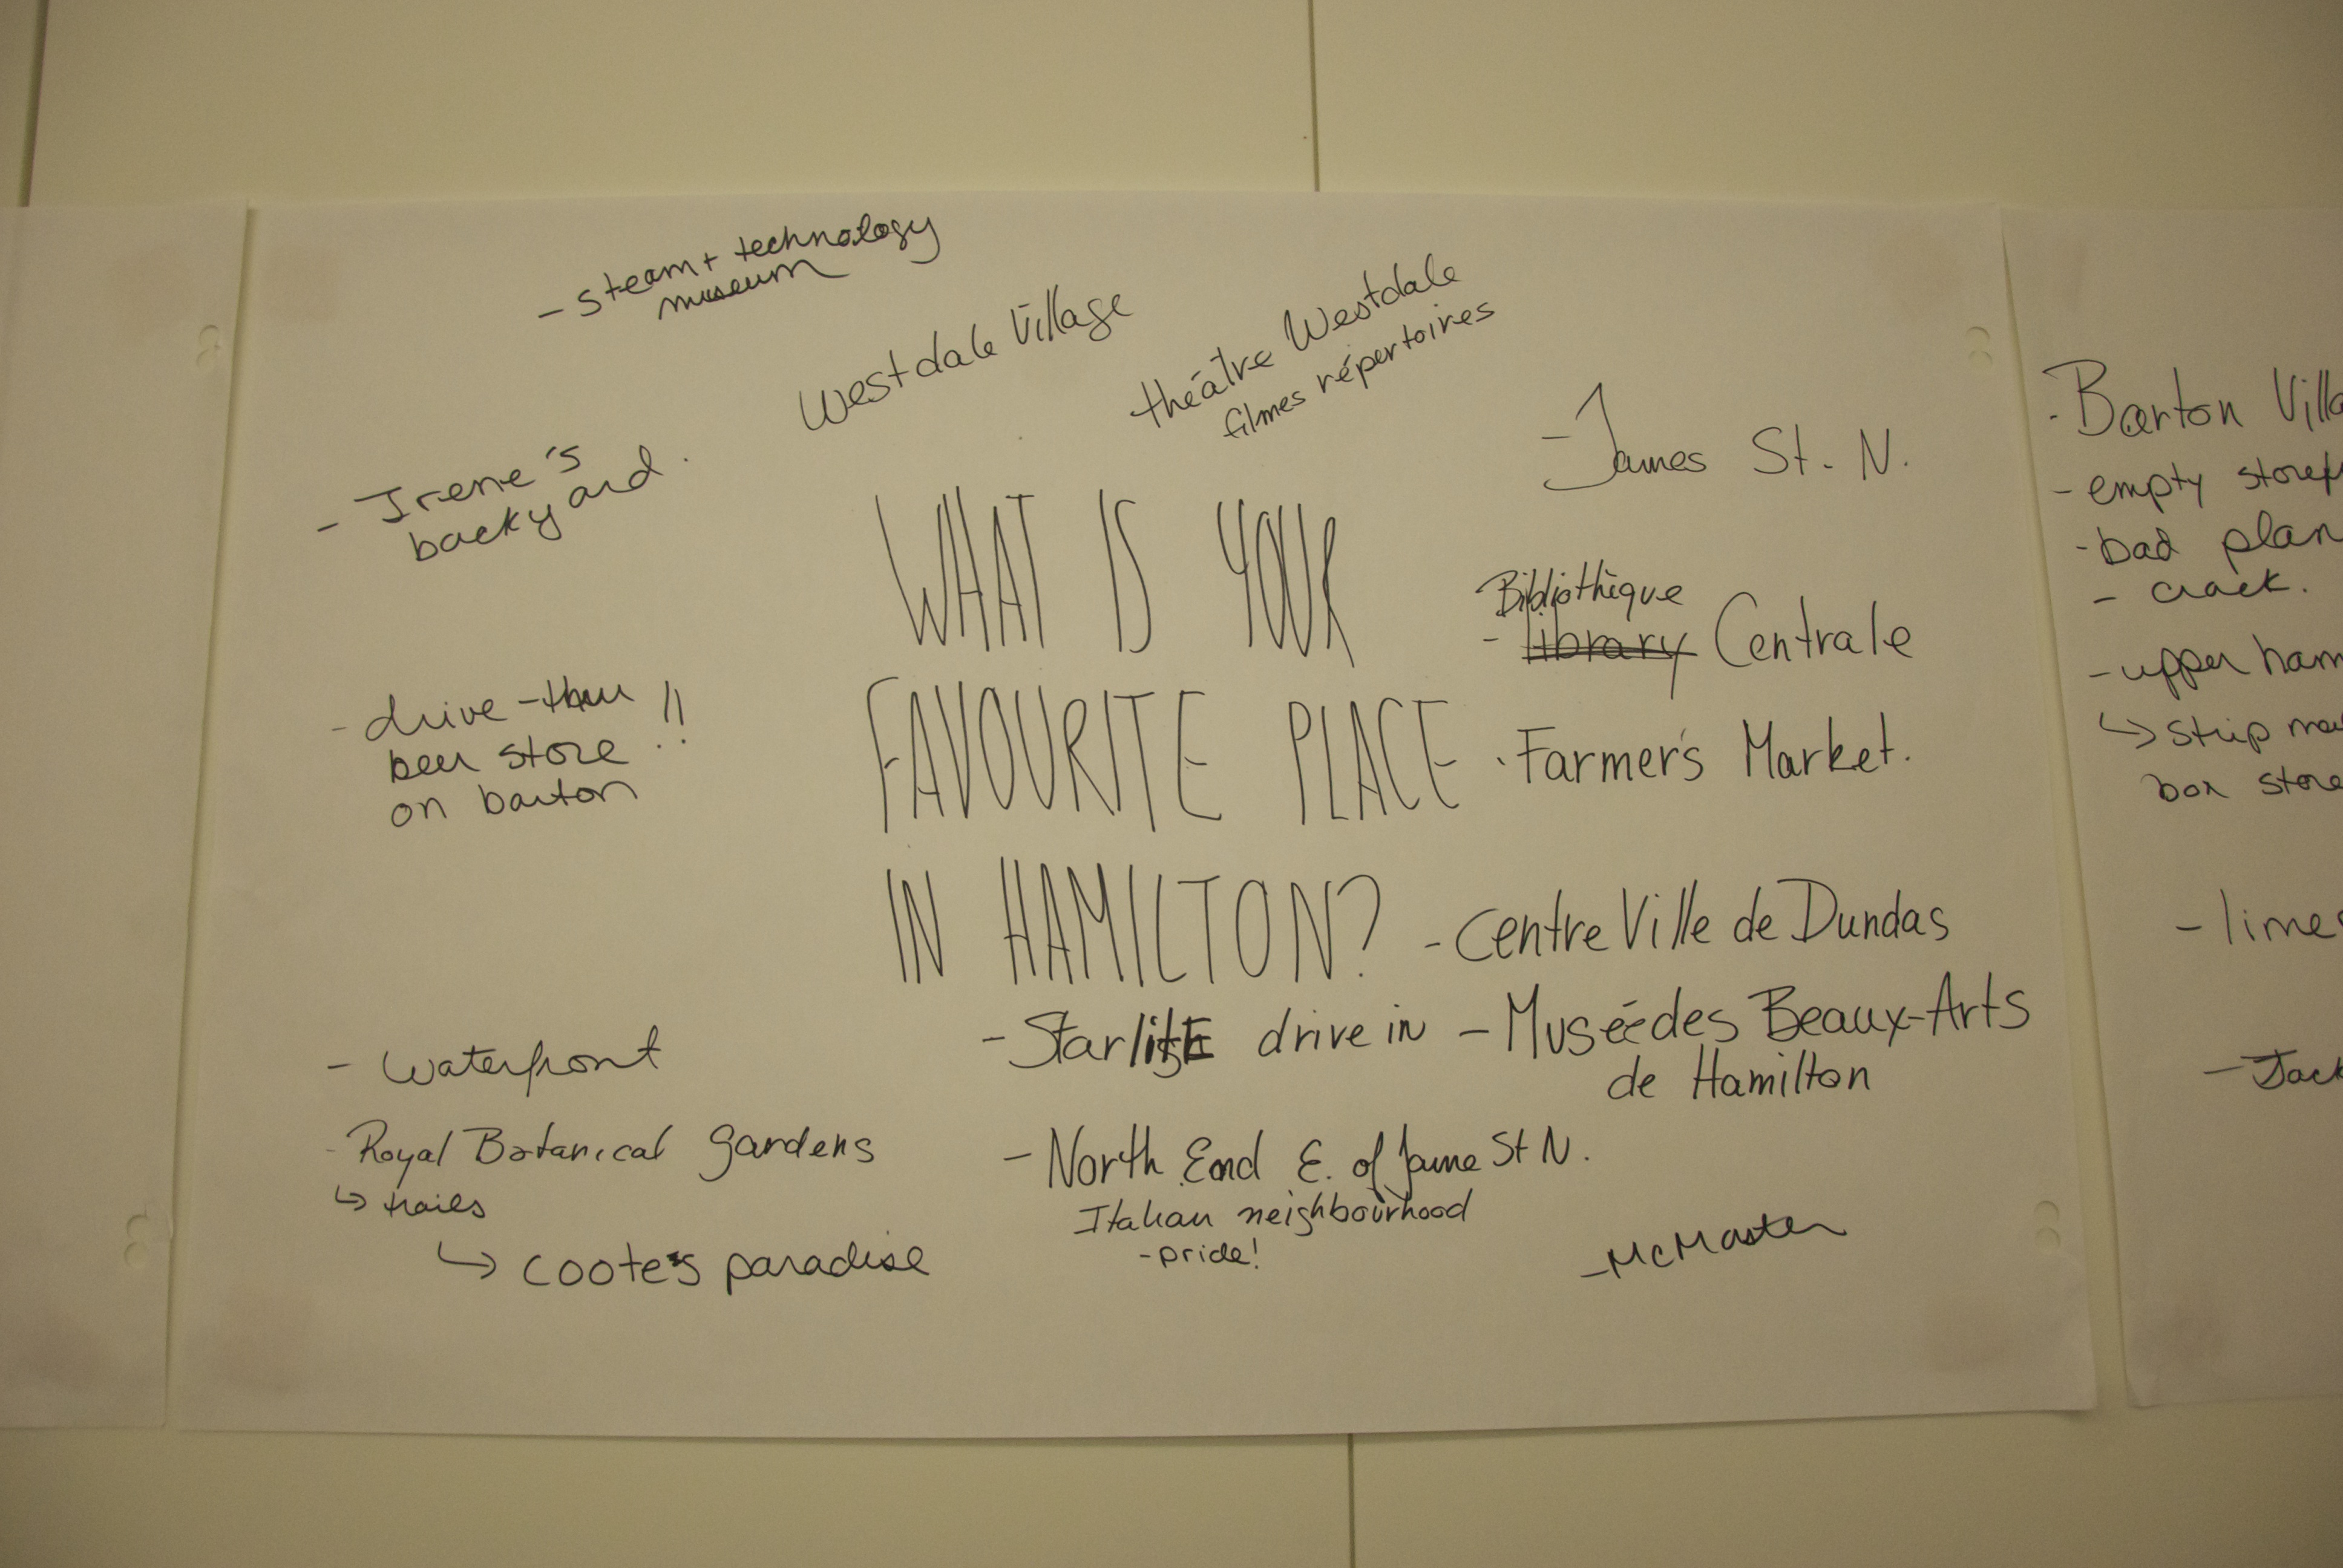 - steam + technology
museum
Westdale Village
théâtre Westdale
filmes répertoires
- James St. N.
- Irene's
backyard.
WHAT IS YOUR
FAVOURITE PLACE
IN HAMILTON?
Bibliothèque
- library Centrale
- Farmer's Market.
- drive-thru
beer store !!
on barton
- Centre Ville de Dundas
- StarlitE drive in
- Musée des Beaux-Arts
de Hamilton
- waterfront
- Royal Botanical gardens
↳ trails
↳ coote's paradise
- North End E. of Jame St N.
Italian neighbourhood
- pride!
- McMaster
- Barton Villa
- empty storef
- bad plan
- crack.
- upper ham
↳ strip ma
box store
- limes
- Jack